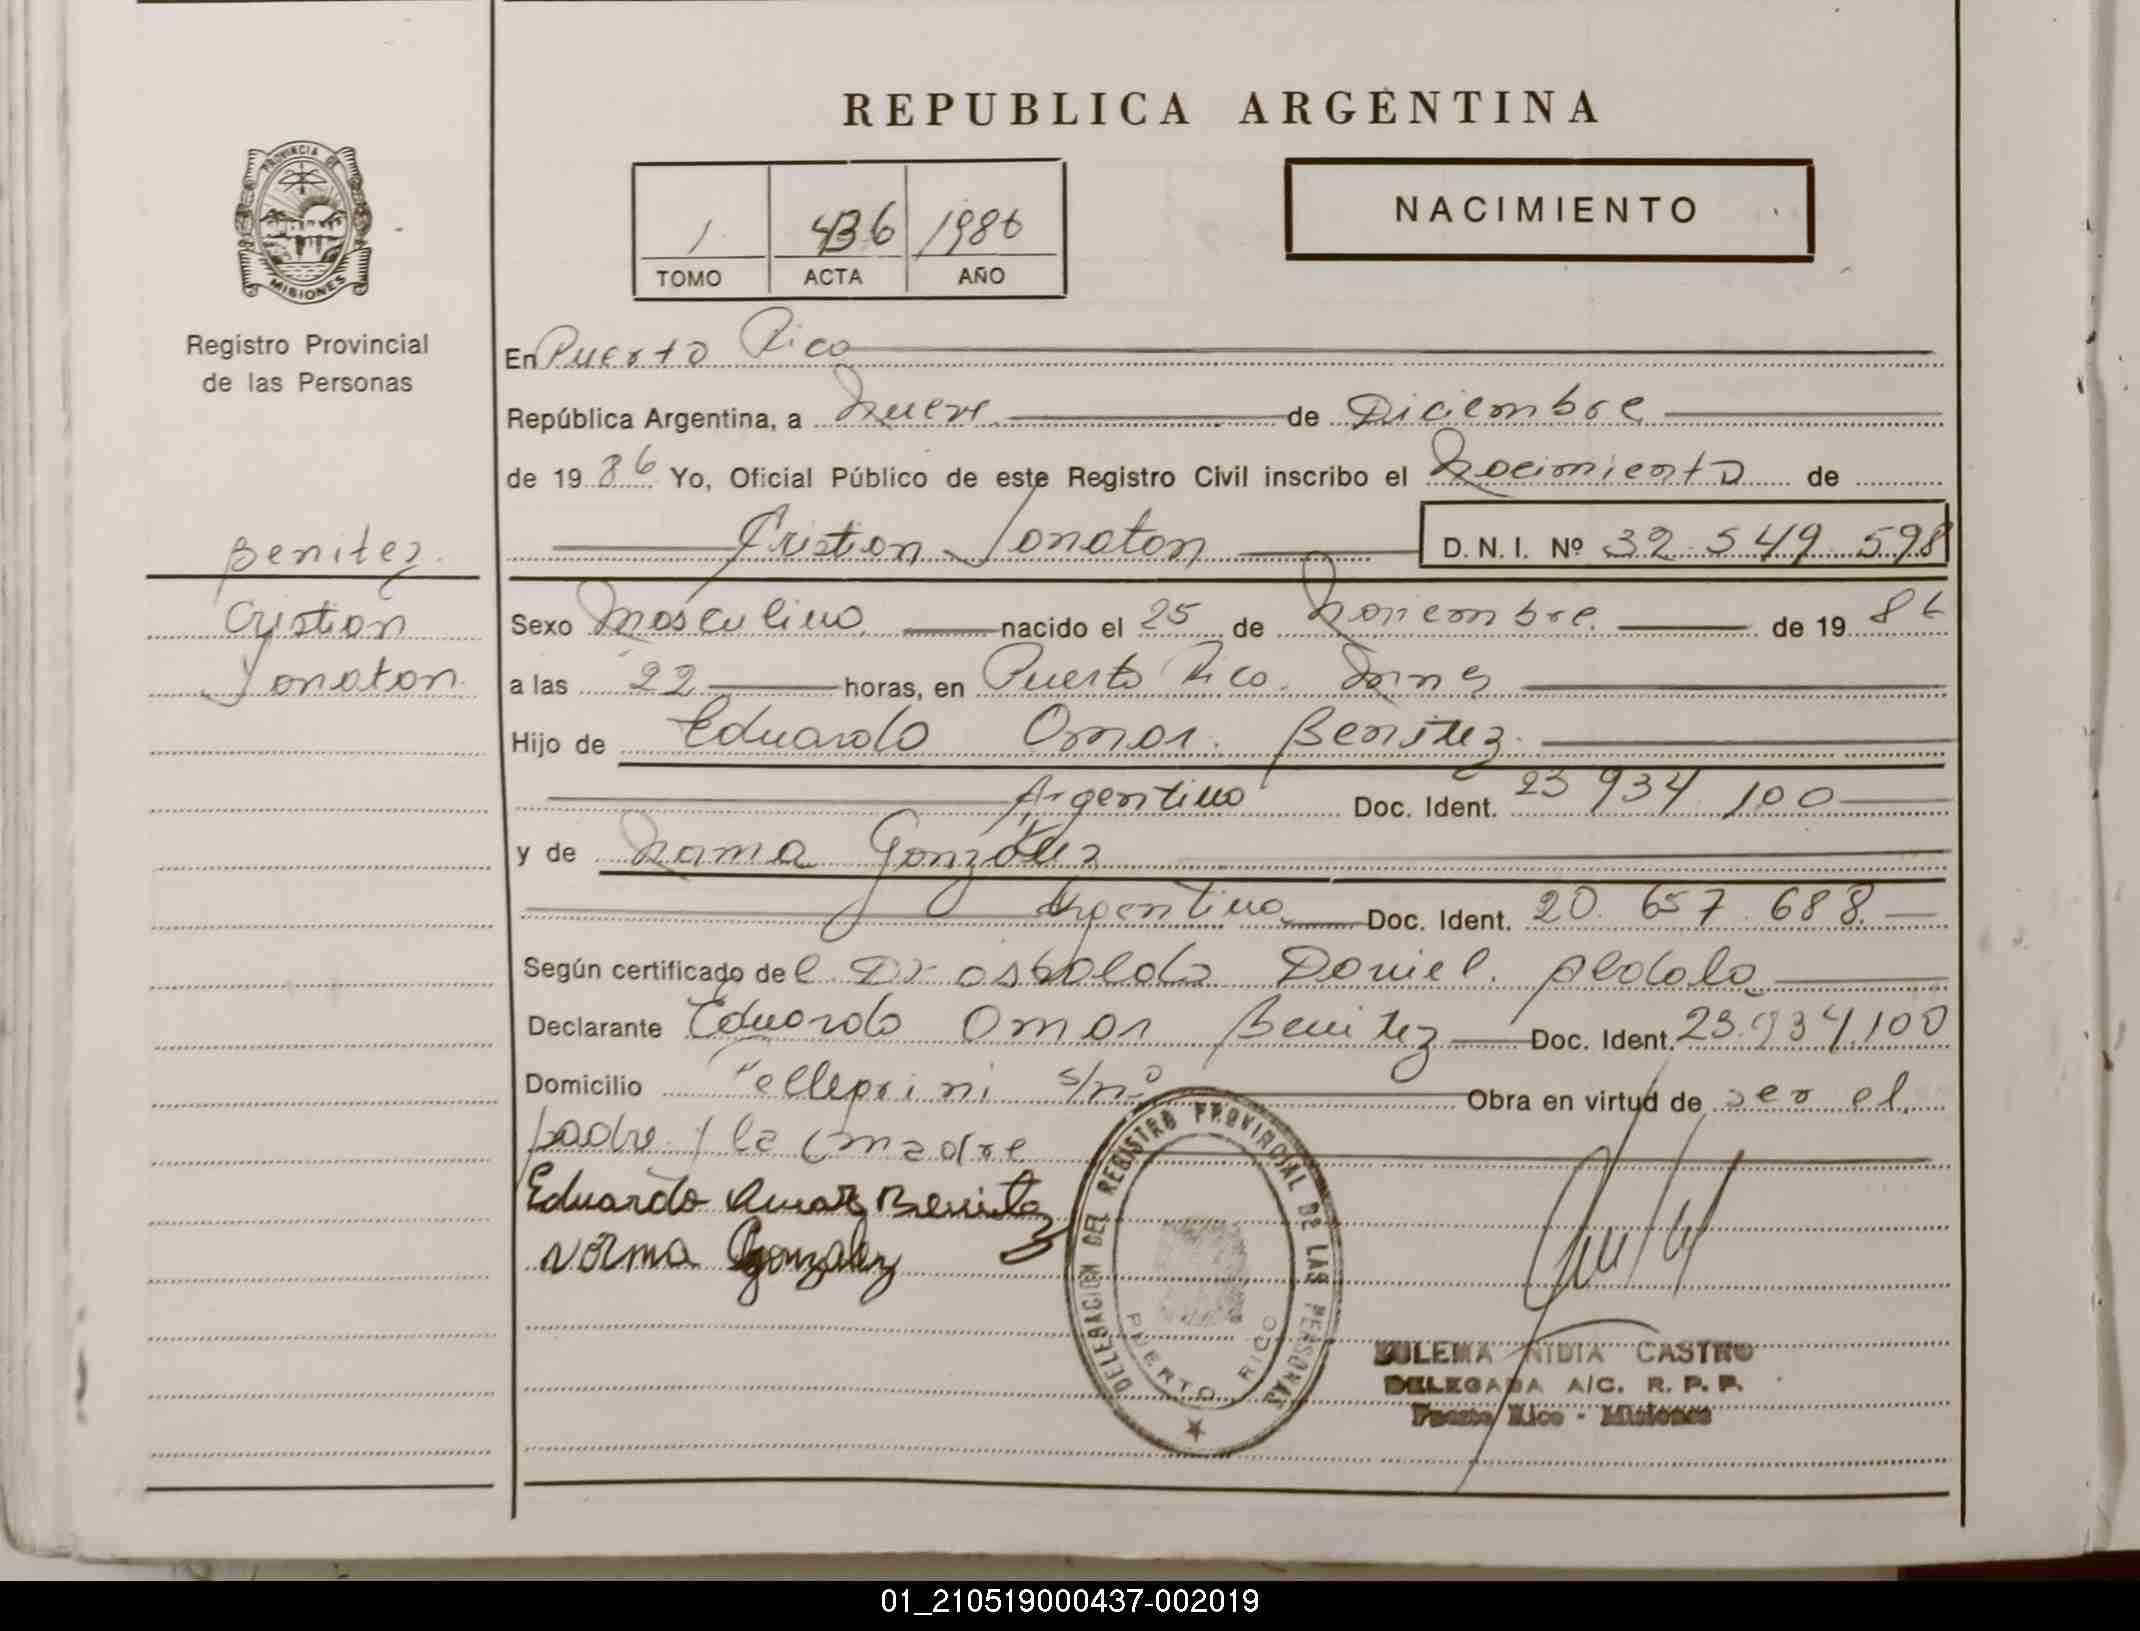 REPUBLICA ARGENTINA
PROVINCIA DE
MISIONES
Registro Provincial
de las Personas
1 436 1986
TOMO ACTA AÑO
NACIMIENTO
En Puerto Rico
República Argentina, a nueve de Diciembre
de 1986 Yo, Oficial Público de este Registro Civil inscribo el Nacimiento de
Cristian Jonatan D. N. I. Nº 32.549.598
Benitez
Cristian
Jonatan
Sexo Masculino nacido el 25 de Noviembre de 1986
a las 22 horas, en Puerto Rico. Mnes
Hijo de Eduardo Omar Benitez
Argentino Doc. Ident. 23 934 100
y de Norma González
Argentina Doc. Ident. 20.657.688
Según certificado del Dr Osvaldo Daniel
Declarante Eduardo Omar Benitez Doc. Ident. 23.934.100
Domicilio Pellegrini s/nº Obra en virtud de ser el
padre y la madre
Eduardo Omar Benitez
Norma Gonzalez
DELEGACION DEL REGISTRO PROVINCIAL DE LAS PERSONAS
PUERTO RICO
ZULEMA NIDIA CASTRO
DELEGADA A/C. R. P. P.
Puerto Rico - Misiones
01_210519000437-002019